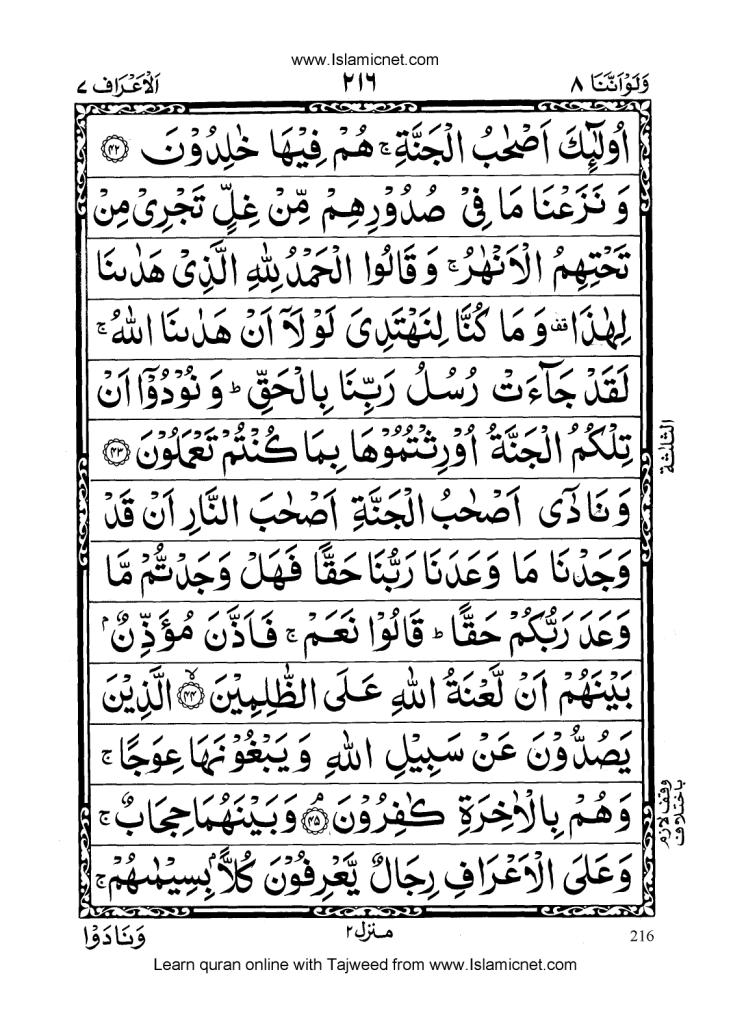 www.Islamicnet.com
وَلَوْ اَنَّنَا ۸ ۲۱۶ اَلْاَعْرَاف ۷
اُولٰٓئِكَ اَصْحٰبُ الْجَنَّةِ ۚ هُمْ فِيْهَا خٰلِدُوْنَ ﴿۴۲﴾
وَ نَزَعْنَا مَا فِىْ صُدُوْرِهِمْ مِّنْ غِلٍّ تَجْرِىْ مِنْ
تَحْتِهِمُ الْاَنْهٰرُ ۚ وَ قَالُوا الْحَمْدُ لِلّٰهِ الَّذِىْ هَدٰىنَا
لِهٰذَا ۟ وَ مَا كُنَّا لِنَهْتَدِىَ لَوْ لَاۤ اَنْ هَدٰىنَا اللّٰهُ ۚ
لَقَدْ جَآءَتْ رُسُلُ رَبِّنَا بِالْحَقِّ ؕ وَ نُوْدُوْۤا اَنْ
تِلْكُمُ الْجَنَّةُ اُوْرِثْتُمُوْهَا بِمَا كُنْتُمْ تَعْمَلُوْنَ ﴿۴۳﴾
الثلاثة
وَ نَادٰۤى اَصْحٰبُ الْجَنَّةِ اَصْحٰبَ النَّارِ اَنْ قَدْ
وَجَدْنَا مَا وَعَدَنَا رَبُّنَا حَقًّا فَهَلْ وَجَدْتُّمْ مَّا
وَعَدَ رَبُّكُمْ حَقًّا ؕ قَالُوْا نَعَمْ ۚ فَاَذَّنَ مُؤَذِّنٌۢ
بَيْنَهُمْ اَنْ لَّعْنَةُ اللّٰهِ عَلَى الظّٰلِمِيْنَ ﴿۴۴﴾ۙ الَّذِيْنَ
يَصُدُّوْنَ عَنْ سَبِيْلِ اللّٰهِ وَ يَبْغُوْنَهَا عِوَجًا ۚ
وَهُمْ بِالْاٰخِرَةِ كٰفِرُوْنَ ﴿۴۵﴾ۘ وَبَيْنَهُمَا حِجَابٌ ۚ
وقف لازم
باختلاف
وَعَلَى الْاَعْرَافِ رِجَالٌ يَّعْرِفُوْنَ كُلًّاۢ بِسِيْمٰىهُمْ ۚ
216 منزل ۲ وَنَادَوْا
Learn quran online with Tajweed from www.Islamicnet.com